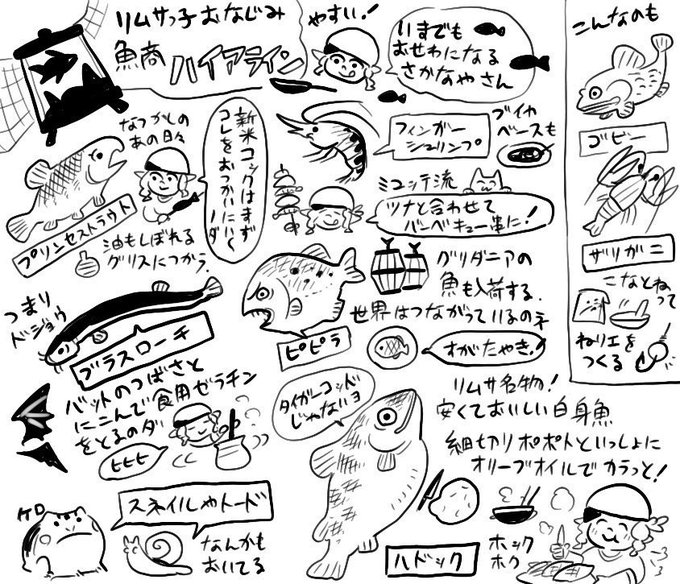 リムサっ子おなじみ
魚商ハイアライン
やすい!
いまでも
おせわになる
さかなやさん
こんなのも
なつかしの
あの日々
新米コックはまず
コレをおつかいにいく
ノダ
フィンガー
シュリンプ
ブイヤ
ベースも
ゴビー
ミコッテ流
ツナと合わせて
バーベキュー串に!
プリンセストラウト
油もしぼれる
グリスにつかう。
グリダニアの
魚も入荷する。
世界はつながっているのネ
ピピラ
すがたやき!
ザリガニ
こなとねって
ねり工を
つくる
つまり
ドジョウ
ブラスローチ
バットのつばさと
にこんで食用ゼラチン
をとるのダ
ヒヒヒ
タイガーコッド
じゃないョ
リムサ名物!
安くておいしい白身魚
細切りポポトといっしょに
オリーブオイルでカラっと!
ケロ
スネイルやトード
なんかも
おいてる
ハドック
ホック
ホク